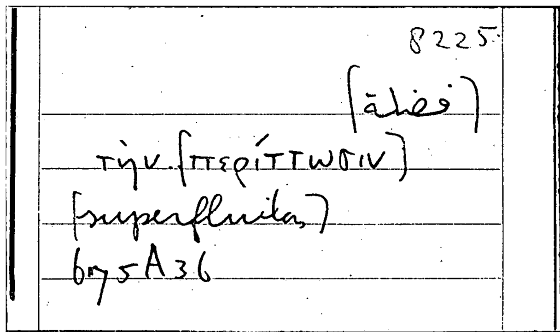 8225
[فضلة]
τὴν [περίττωσιν]
[superfluitas]